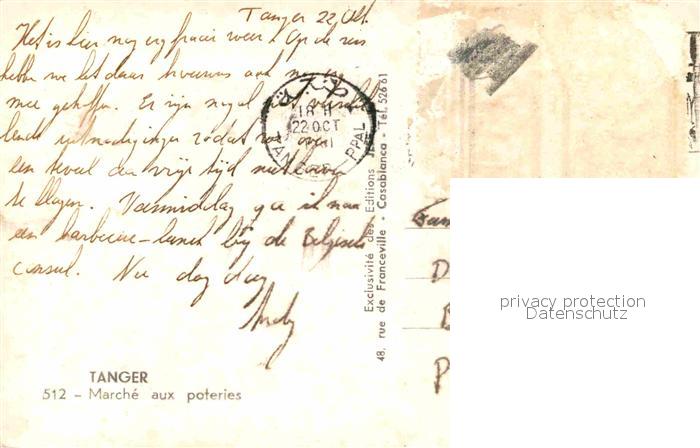 Tanger 22 Okt.
Het is hier nog erg fraai weer. Op de reis
hebben we het daar trouwens ook
mee getroffen. Er zijn nogal wat verschil
lende uitnodigingen zodat we over
een teveel aan vrije tijd niet
te klagen. Vanmiddag ga ik naar
een barbecue-lunch bij de Belgische
consul. Nu dag dag
Andy
18 H
22 OCT
TANGER PPAL
Exclusivité des Editions
48, rue de Franceville - Casablanca - Tél. 526 61
Fam
D
B
P
privacy protection
Datenschutz
TANGER
512 - Marché aux poteries